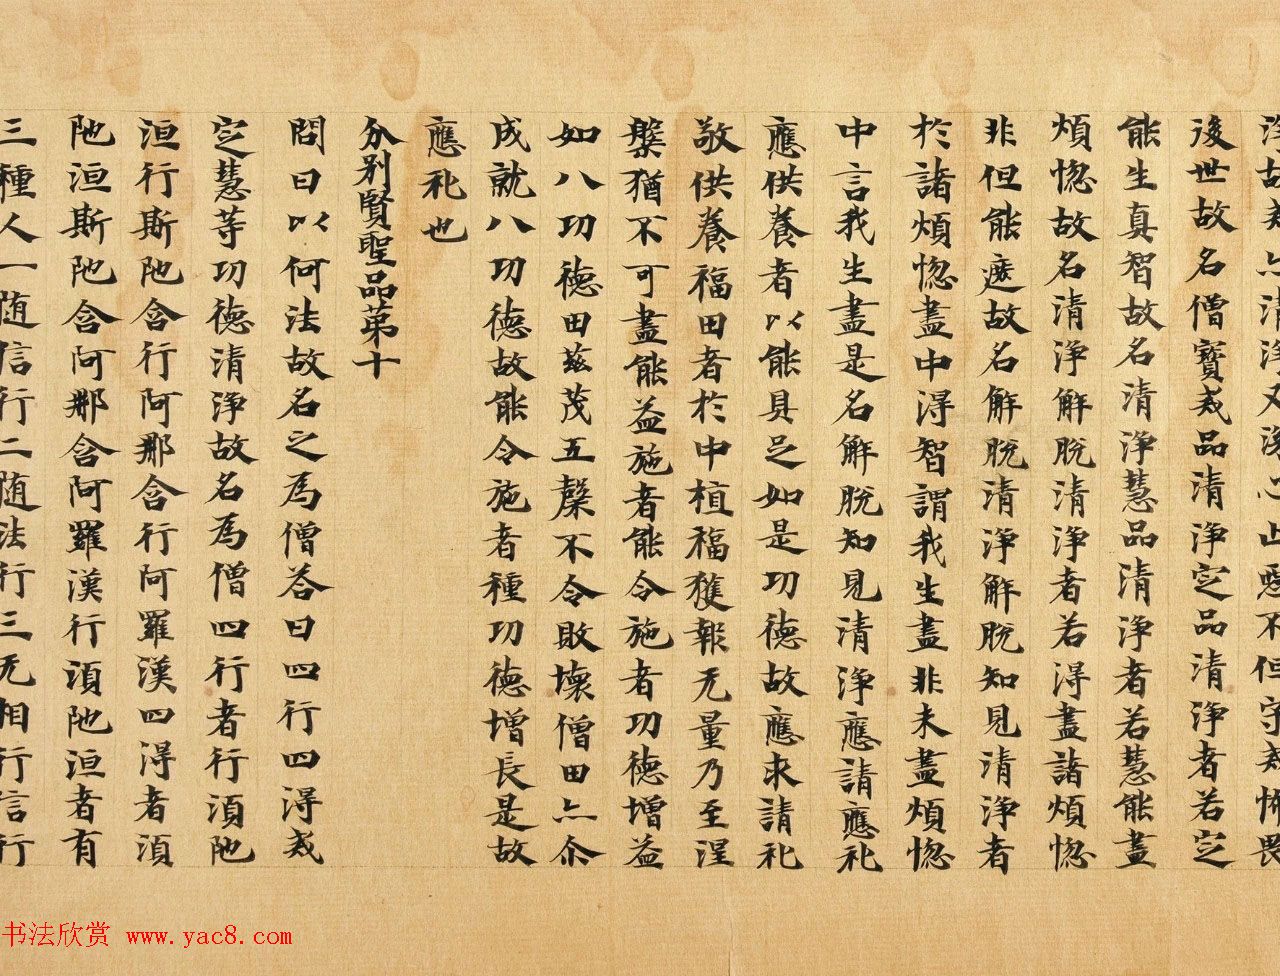 淨故戒亦清淨又深心止惡不但守戒怖畏
後世故名僧寶戒品清淨定品清淨者若定
能生真智故名清淨慧品清淨者若慧能盡
煩惚故名清淨解脫清淨者若得盡諸煩惚
非但能遮故名解脫清淨解脫知見清淨者
於諸煩惚盡中得智謂我生盡非未盡煩惚
中言我生盡是名解脫知見清淨應請應礼
應供養者以能具足如是功德故應求請礼
敬供養福田者於中植福獲報无量乃至涅
槃猶不可盡能益施者能令施者功德增益
如八功德田茲茂五槃不令敗壞僧田亦尒
成就八功德故能令施者種功德增長是故
應礼也
分別賢聖品苐十
問曰以何法故名之為僧荅曰四行四得戒
定慧等功德清淨故名為僧四行者行湏陁
洹行斯陁含行阿那含行阿羅漢四得者湏
陁洹斯陁含阿那含阿羅漢行湏陁洹者有
三種人一随信行二随法行三无相行信行
书法欣赏 www.yac8.com